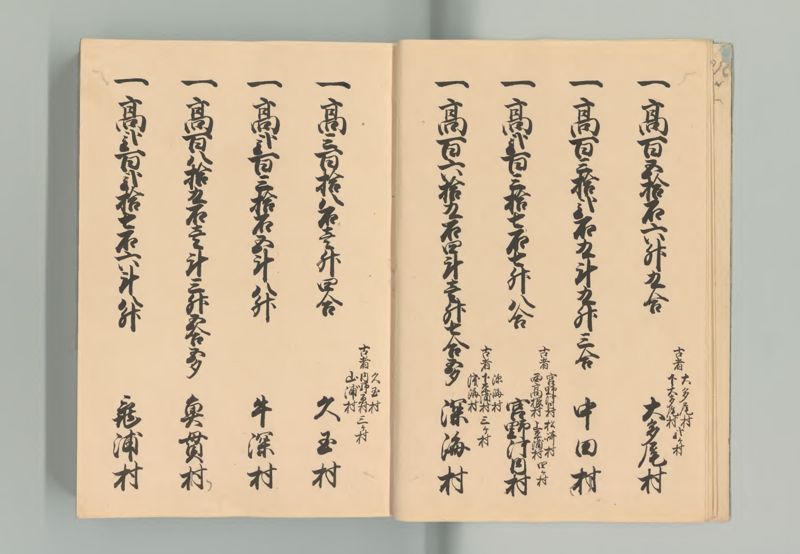 一高百五拾石六升五合
古者 大多尾村
下大多尾村 弐ヶ村
大多尾村
一高百三拾弐石五斗九升三合
中田村
一高弐百三拾七石七升八合
古者 宮野河内村
四ヶ村
宮野河内村
一高百六拾五石四斗壱升七合五夕
古者 深海村
浅海村 三ヶ村
深海村
一高三百拾八石壱升四合
古者 久玉村
山浦村 三ヶ村
久玉村
一高弐百三拾石五斗八升
牛深村
一高百八拾五石壱斗三升五合五夕
魚貫村
一高弐百弐拾七石六斗八升
亀浦村